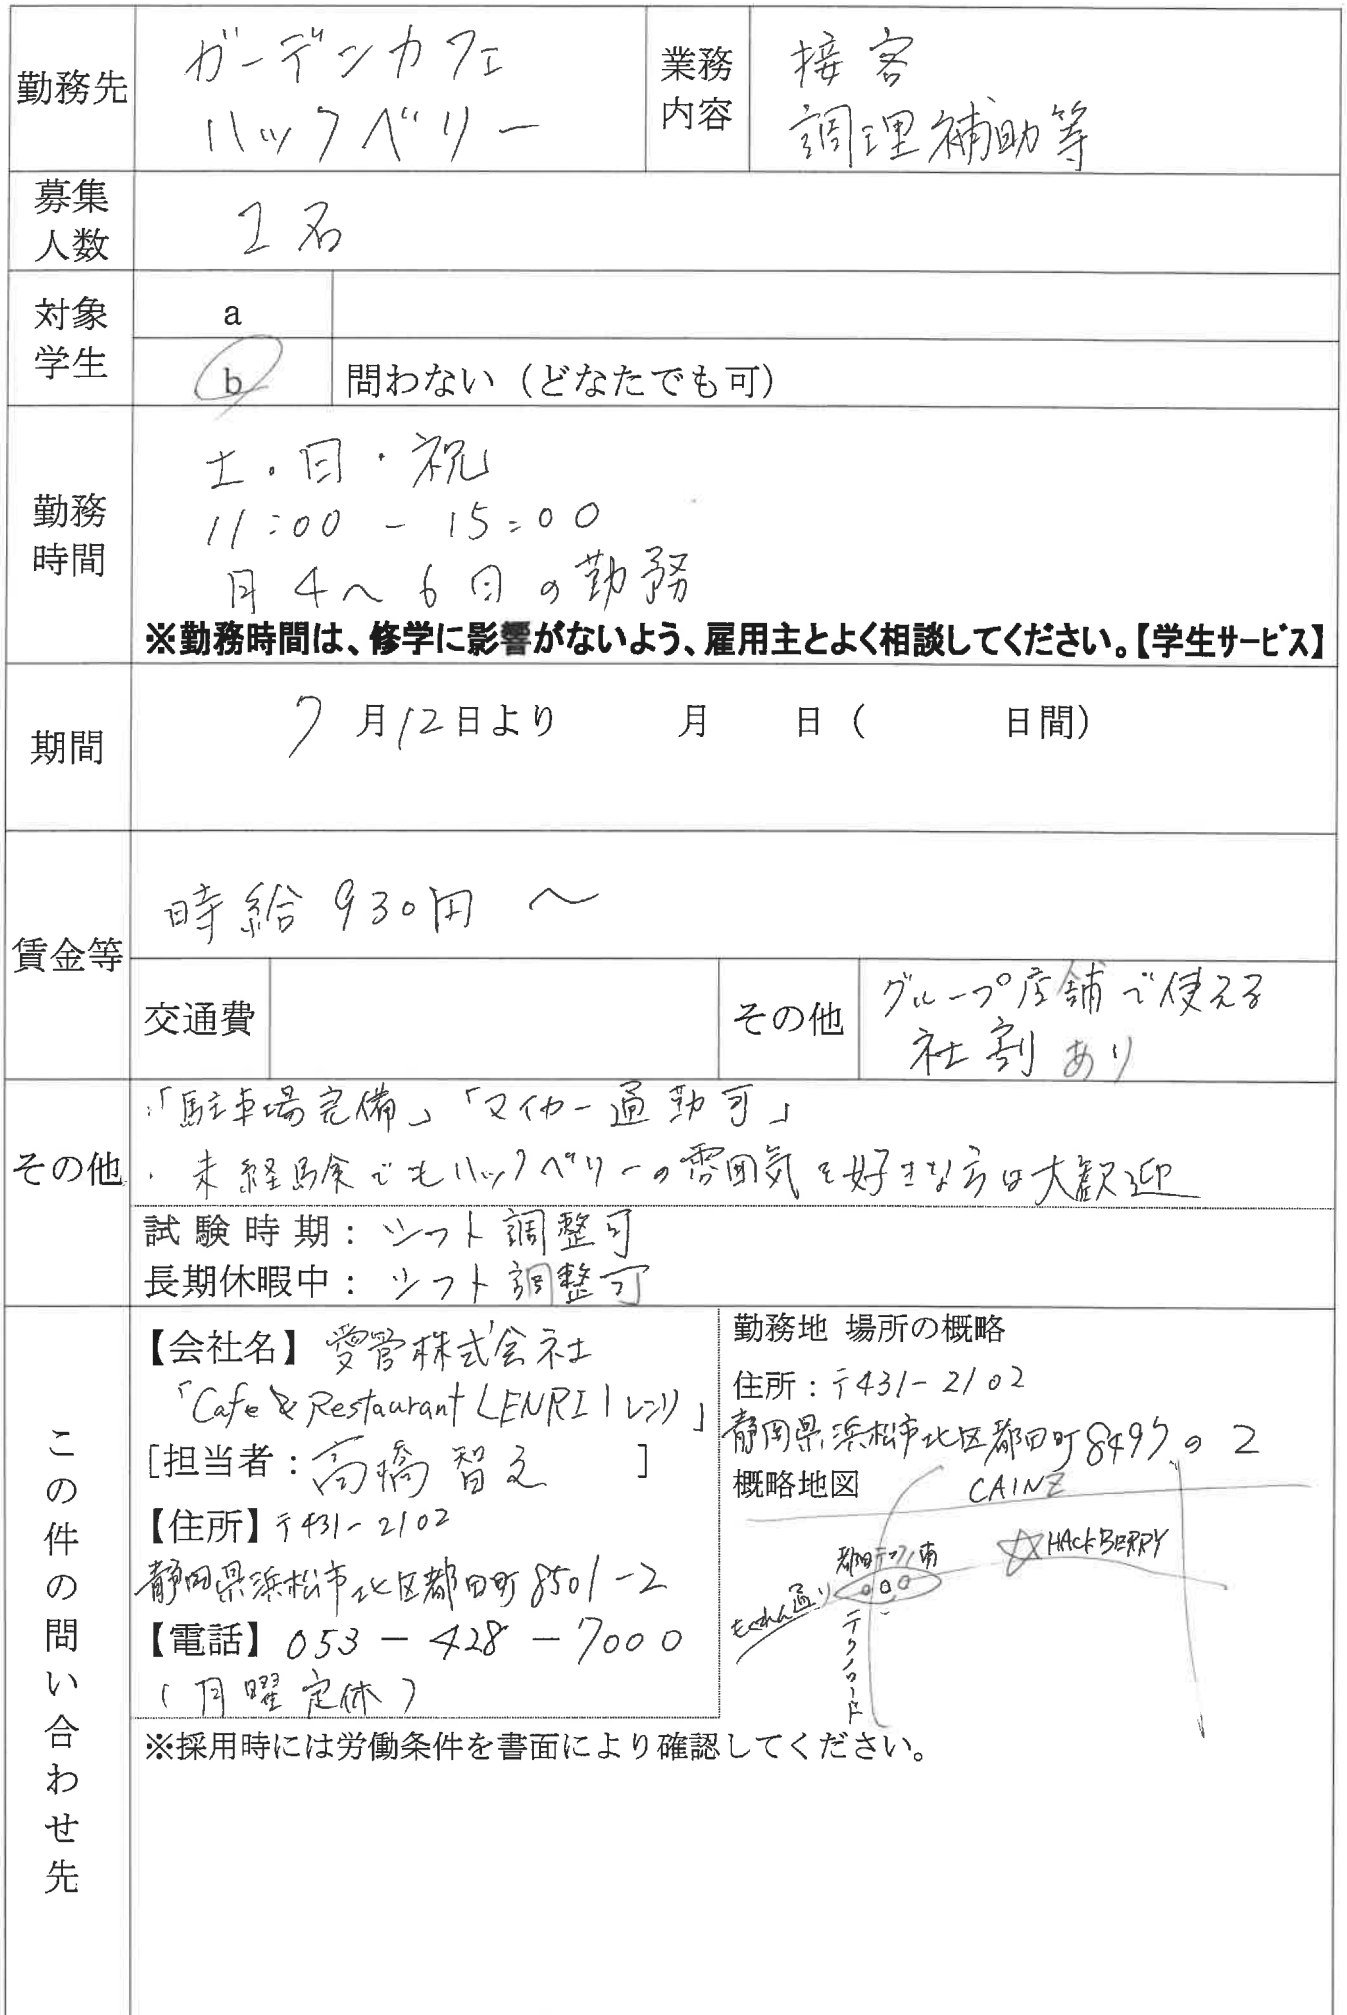 勤務先
ガーデンカフェ
ハックベリー
業務
内容
接客
調理補助等
募集
人数
2名
対象
学生
a
b 問わない（どなたでも可）
勤務
時間
土・日・祝
11:00 - 15:00
月4〜6日の勤務
※勤務時間は、修学に影響がないよう、雇用主とよく相談してください。【学生サービス】
期間
7月12日より　　月　　日（　　　日間）
賃金等
時給930円〜
交通費
その他
グループ店舗で使える
社割あり
その他
・「駐車場完備」「マイカー通勤可」
・未経験でもハックベリーの雰囲気を好きな方は大歓迎
試験時期：シフト調整可
長期休暇中：シフト調整可
この件の問い合わせ先
【会社名】愛管株式会社
「Cafe & Restaurant LENRI | レンリ」
[担当者：高橋智之]
【住所】〒431-2102
静岡県浜松市北区都田町8501-2
【電話】053-428-7000
（月曜定休）
勤務地 場所の概略
住所：〒431-2102
静岡県浜松市北区都田町8497の2
概略地図
CAINZ
HACKBERRY
都田テクノ南
テクノロード
※採用時には労働条件を書面により確認してください。